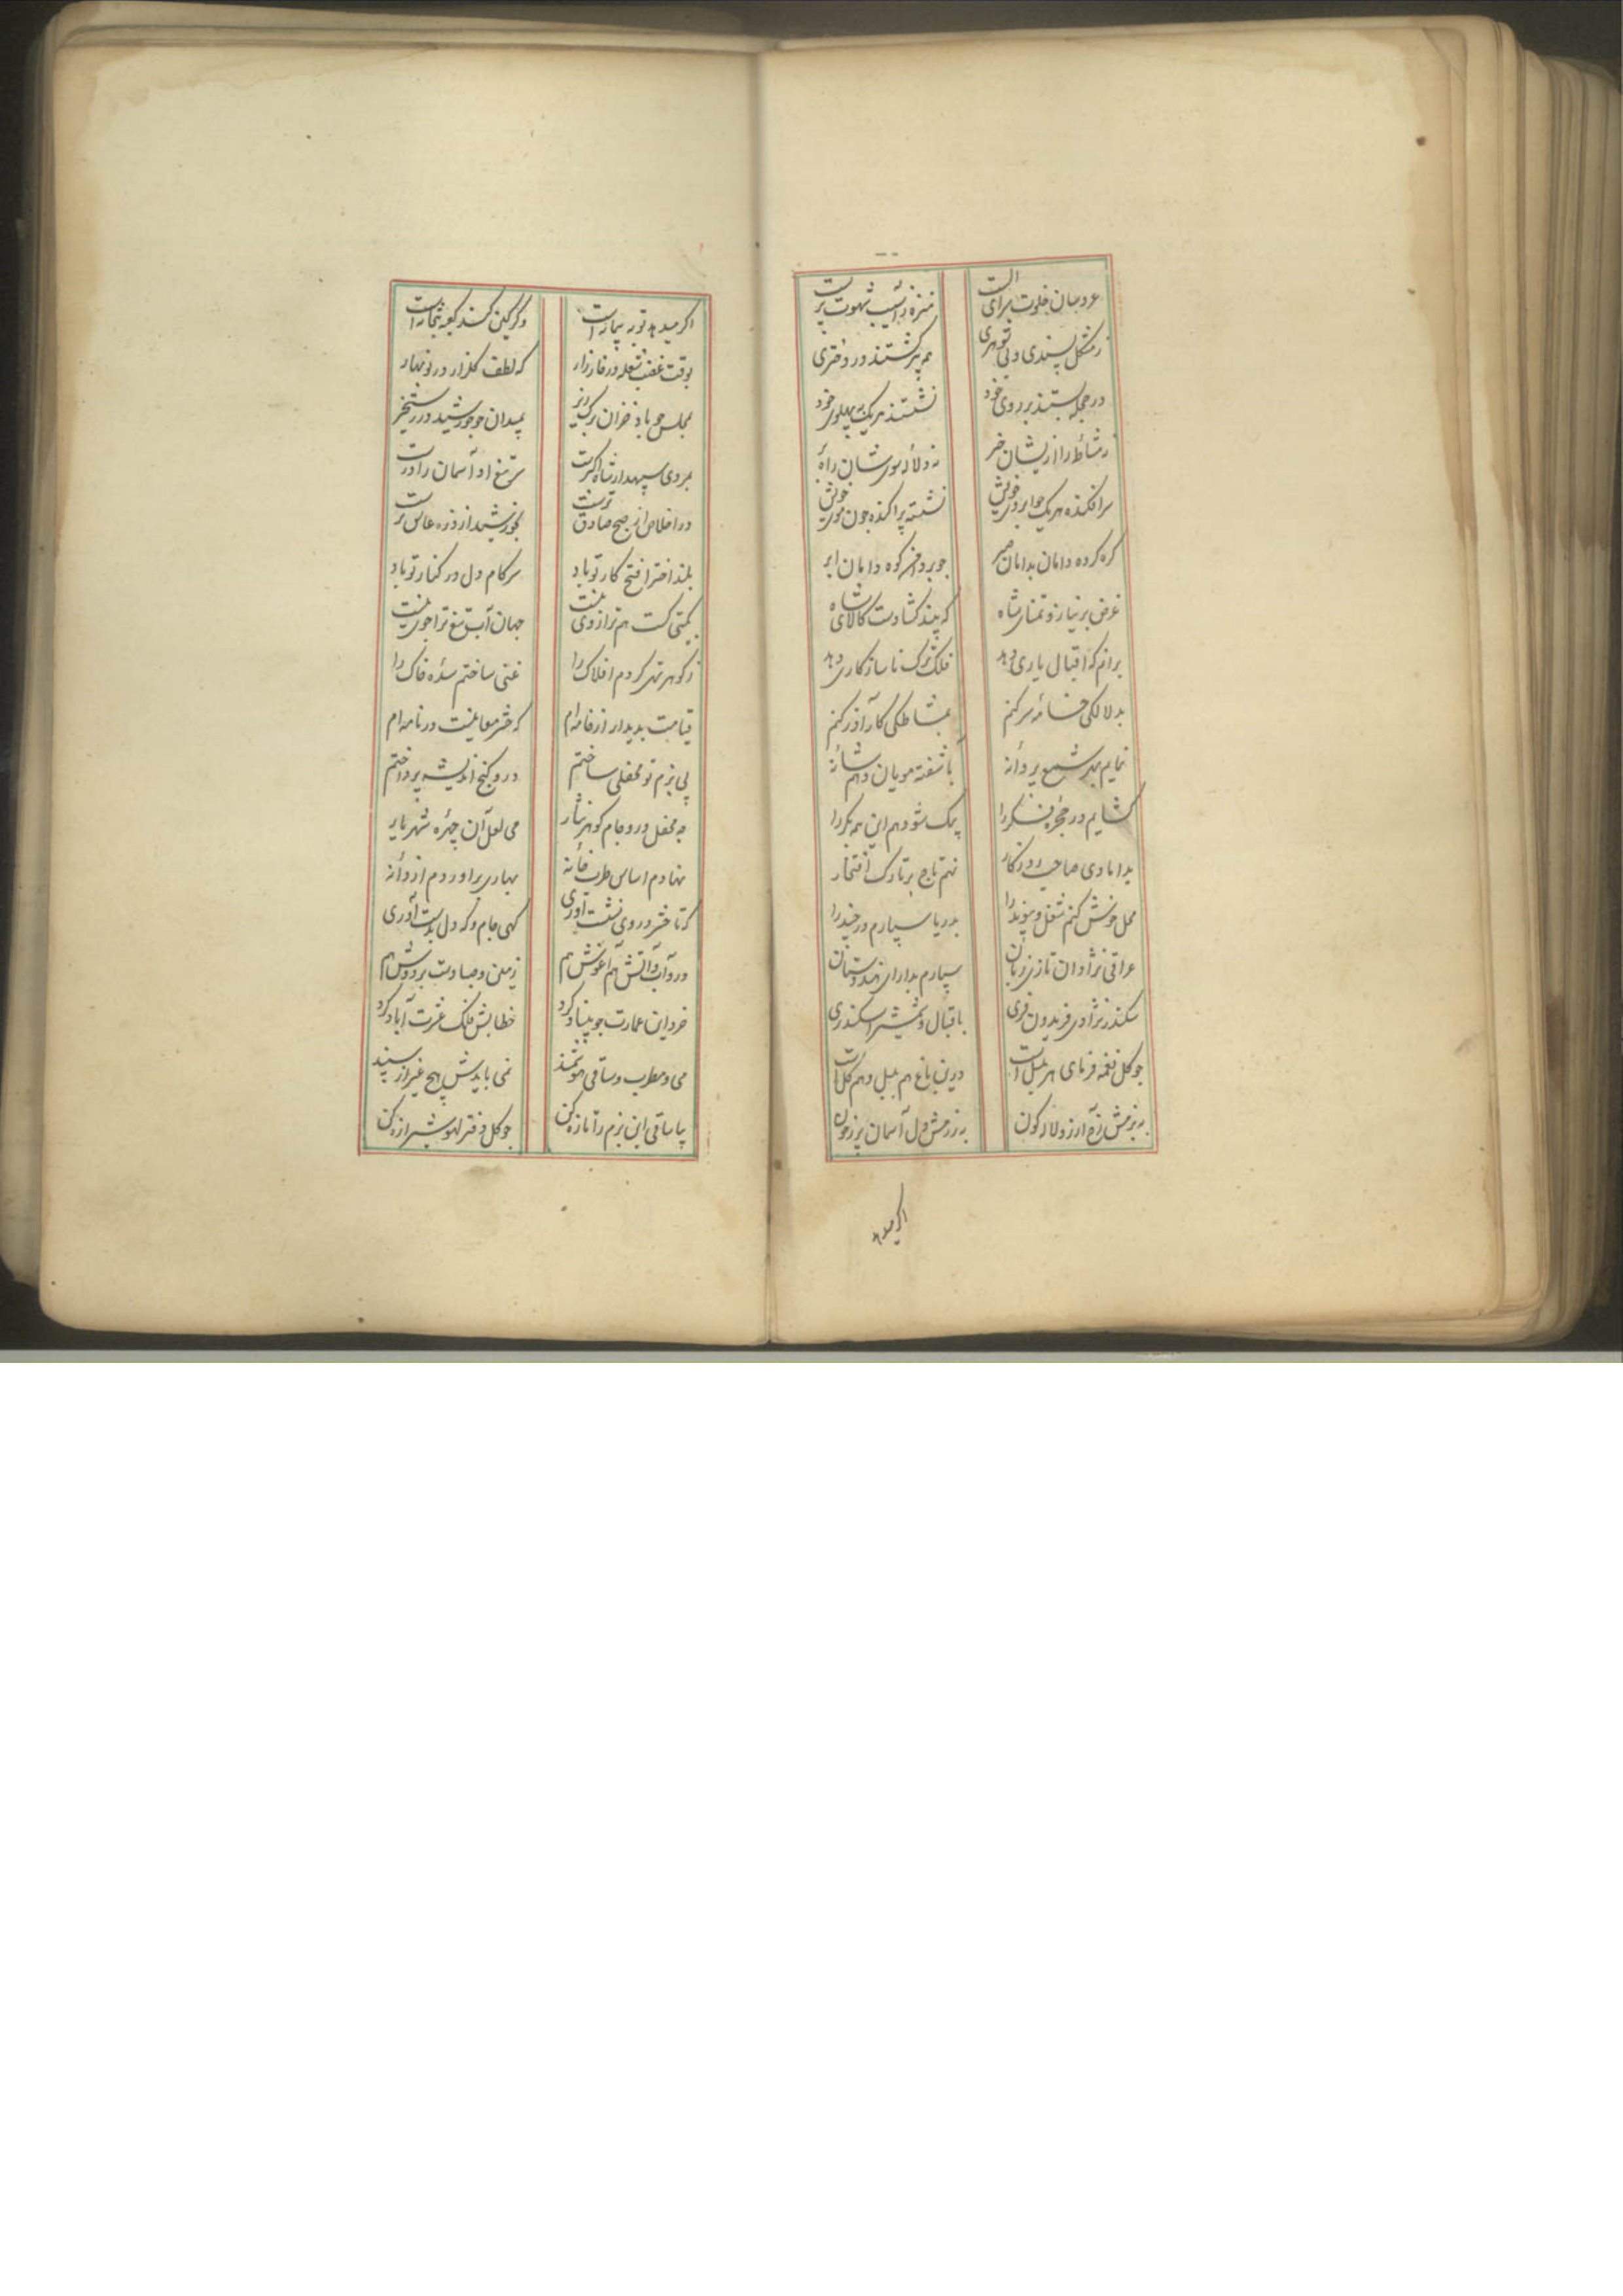 عروسان خلوت سرای الست
منزه ز آسیب شهوت پرست
ز مشکل پسندی و بی شوهری
همه پیر گشتند در دختری
در حجله بستند بر روی خود
نشستند هر یک به پهلوی خود
نه مشاطه را از ایشان خبر
نه دلاله سوی شان راه
سر افکنده هر یک چو ابروی خویش
نشسته پراکنده چون موی خویش
گره کرده دامان بدامان صبر
چو بر دامن کوه دامان ابر
غرض بر نیاز و تمنای شاه
که بیند گشادست کالای شاه
برانم که اقبال یاری دهد
فلک ترک ناسازکاری دهد
بدلالکی خانه سر کنم
بمشاطکی کار آذر کنم
نمایم بهر شمع پروانه
باشفته مویان دهم شانه
کشایم در حجره فکر را
بیک شو دهم این همه بکر را
بدامادی صاحب روزکار
نهم تاج بر تارک افتخار
محل خوش کنم شغل و پیوند را
بدریا سپارم در چند را
عراقی نژادان تازی زبان
سپارم بدارای هندوستان
سکندر نژادی فریدون فری
باقبال و شمشیر اسکندری
چو کل نغمه فرمای هر بلبل است
درین باغ هم بلبل و هم کل است
به بزمش آرزو لاله کون
به رزمش دل آسمان پر ز خون
اکر میدهد
اکر میدهد توبه پیمانه است
وکر کین کشد کعبه بتخانه است
بوقت غضب شعله در خارزار
که لطف کلزار در نوبهار
بمجلس چو باد خزان برک ریز
بمیدان چو خورشید در رستخیز
بمردی سپهدار شاه اکبرست
سر تیغ او آسمان را درست
در اخلاص از صبح صادق ترست
بخورشید از ذره عاشق ترست
بلند اخترا فتح کار تو باد
سر کام دل در کنار تو باد
بکیتی کست هم ترازوی نیست
جهان آب تیغ ترا جوی نیست
ز کوهر تهی کردم افلاک را
غنی ساختم سده خاک را
قیامت پدیدار از خامه ام
که حشر معانیست در نامه ام
پی بزم تو محفلی ساختم
درو کنج اندیشه پرداختم
چه محفل درو جام کوهر نثار
می لعل آن چهره شهریار
نهادم اساس طرب خانه
بهاری براوردم از دانه
که تا حشر در وی نشست آوری
کهی جام و که دل بدست آوری
درو آب و آتش هم آغوش هم
زمین و سما دست بر دوش هم
خرد این عمارت چو بنیاد کرد
خطابش فلک عشرت آباد کرد
می و مطرب و ساقی هوشمند
نمی بایدش هیچ غیر از سپند
بیا ساقی این بزم را تازه کن
چو کل دفتر لهو شیرازه کن